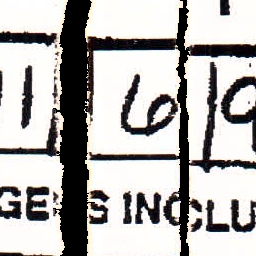 11 6 19
GENS INCLU